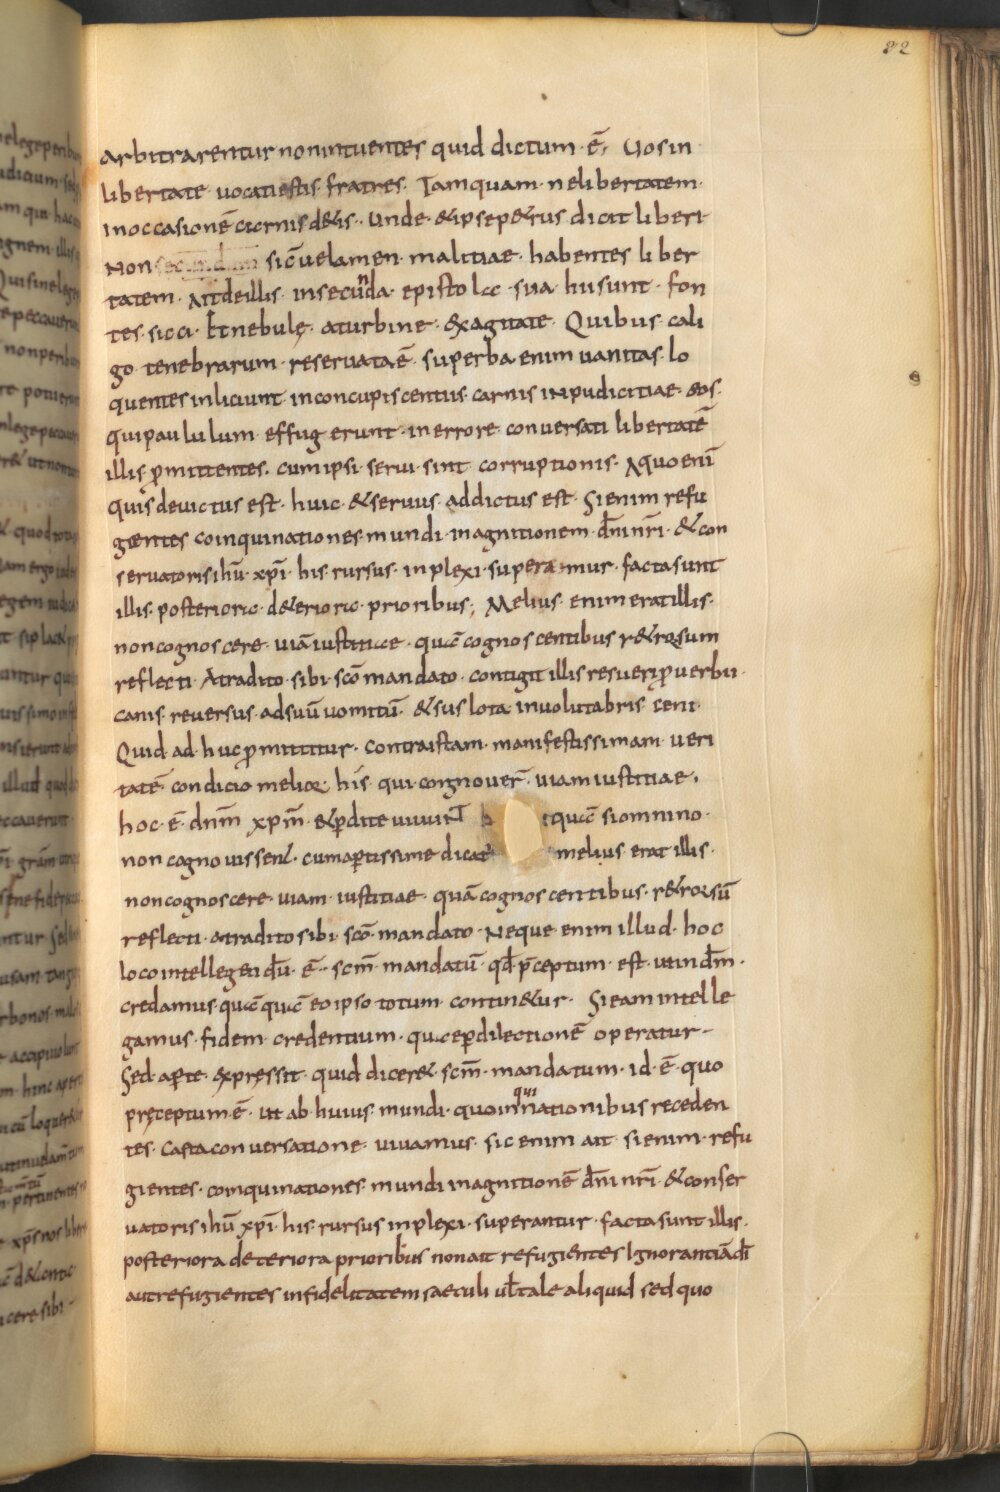 22
arbitrarentur nonintuentes quid dictum · ē · Uosin
libertate · uocatiestis · fratres · Tamquam · nelibertatem ·
inoccasionē carnisdetis · Unde · & ipsepetrus dicit liberi
Non sicūelamen · malitiae · habentes liber
tatem · Aitdeillis · insecunda · epistola · sua · hisunt · fon
tes · sicci · Et nebulę · aturbine · exagitate · Quibus · cali
go · tenebrarum · reseruataē · superba enim uanitas · lo
quentes inliciunt · inconcupiscentiis · carnis inpudicitiae · eos ·
qui paululum · effugerunt · in errore · conuersati libertatē
illis p̄mittentes · cum ipsi · serui · sint · corruptionis · Aquoenī
quis deuictus est · huic · & seruus · addictus est · Si enim refu
gientes coinquinationes mundi · inagnitionem · dn̄inr̄i · & con
seruatoris ihū · xp̄i · his rursus · inplexi · supera mur · facta sunt
illis · posteriora · deteriora · prioribus; Melius · enim erat illis ·
non cognoscere · uiā iustitiae · quā cognoscentibus retrorsum
reflecti · Atradito · sibi · scō mandato · contigit illis res ueri p̄uerbii ·
canis · reuersus · adsuū uomitū · & sus lota inuolutabris · ceni ·
Quid adhuc p̄mittitur · contraistam · manifestissimam · ueri
tatē · condicio melior · his · qui cognouer̄ · uiam iustitiae ·
hoc · ē · dn̄m xp̄m · & p̄dite uiuunt quā siomnino ·
non cognouissent · cum ap̄tissime dicat melius erat illis ·
non cognoscere · uiam · iustitiae · quā cognoscentibus · retrorsū
reflecti · atradito sibi · scō · mandato · Neque enim illud · hoc
loco intellegendū · ē · scm̄ · mandatū · qd̄ p̄ceptum · est · utindm̄ ·
credamus · quāquā eo ipso totum · continetur · Si eam intelle
gamus · fidem · credentium · quae p̄dilectionē operatur ·
Sed ap̄te · expressit · quid diceret · scm̄ · mandatum · id · ē · quo
pręceptum ē · ut ab huius mundi · quoinquinationibus receden
tes · casta conuersatione · uiuamus · sic enim ait · si enim · refu
gientes · coinquinationes · mundi inagnitionē dn̄i nr̄i · & conser
uatoris ihū xp̄i · his rursus inplexi · superantur · facta sunt illis ·
posteriora deteriora prioribus non ait refugientes Ignorantiā dī
aut refugientes infidelitatem saeculi uł tale aliquid sed quo